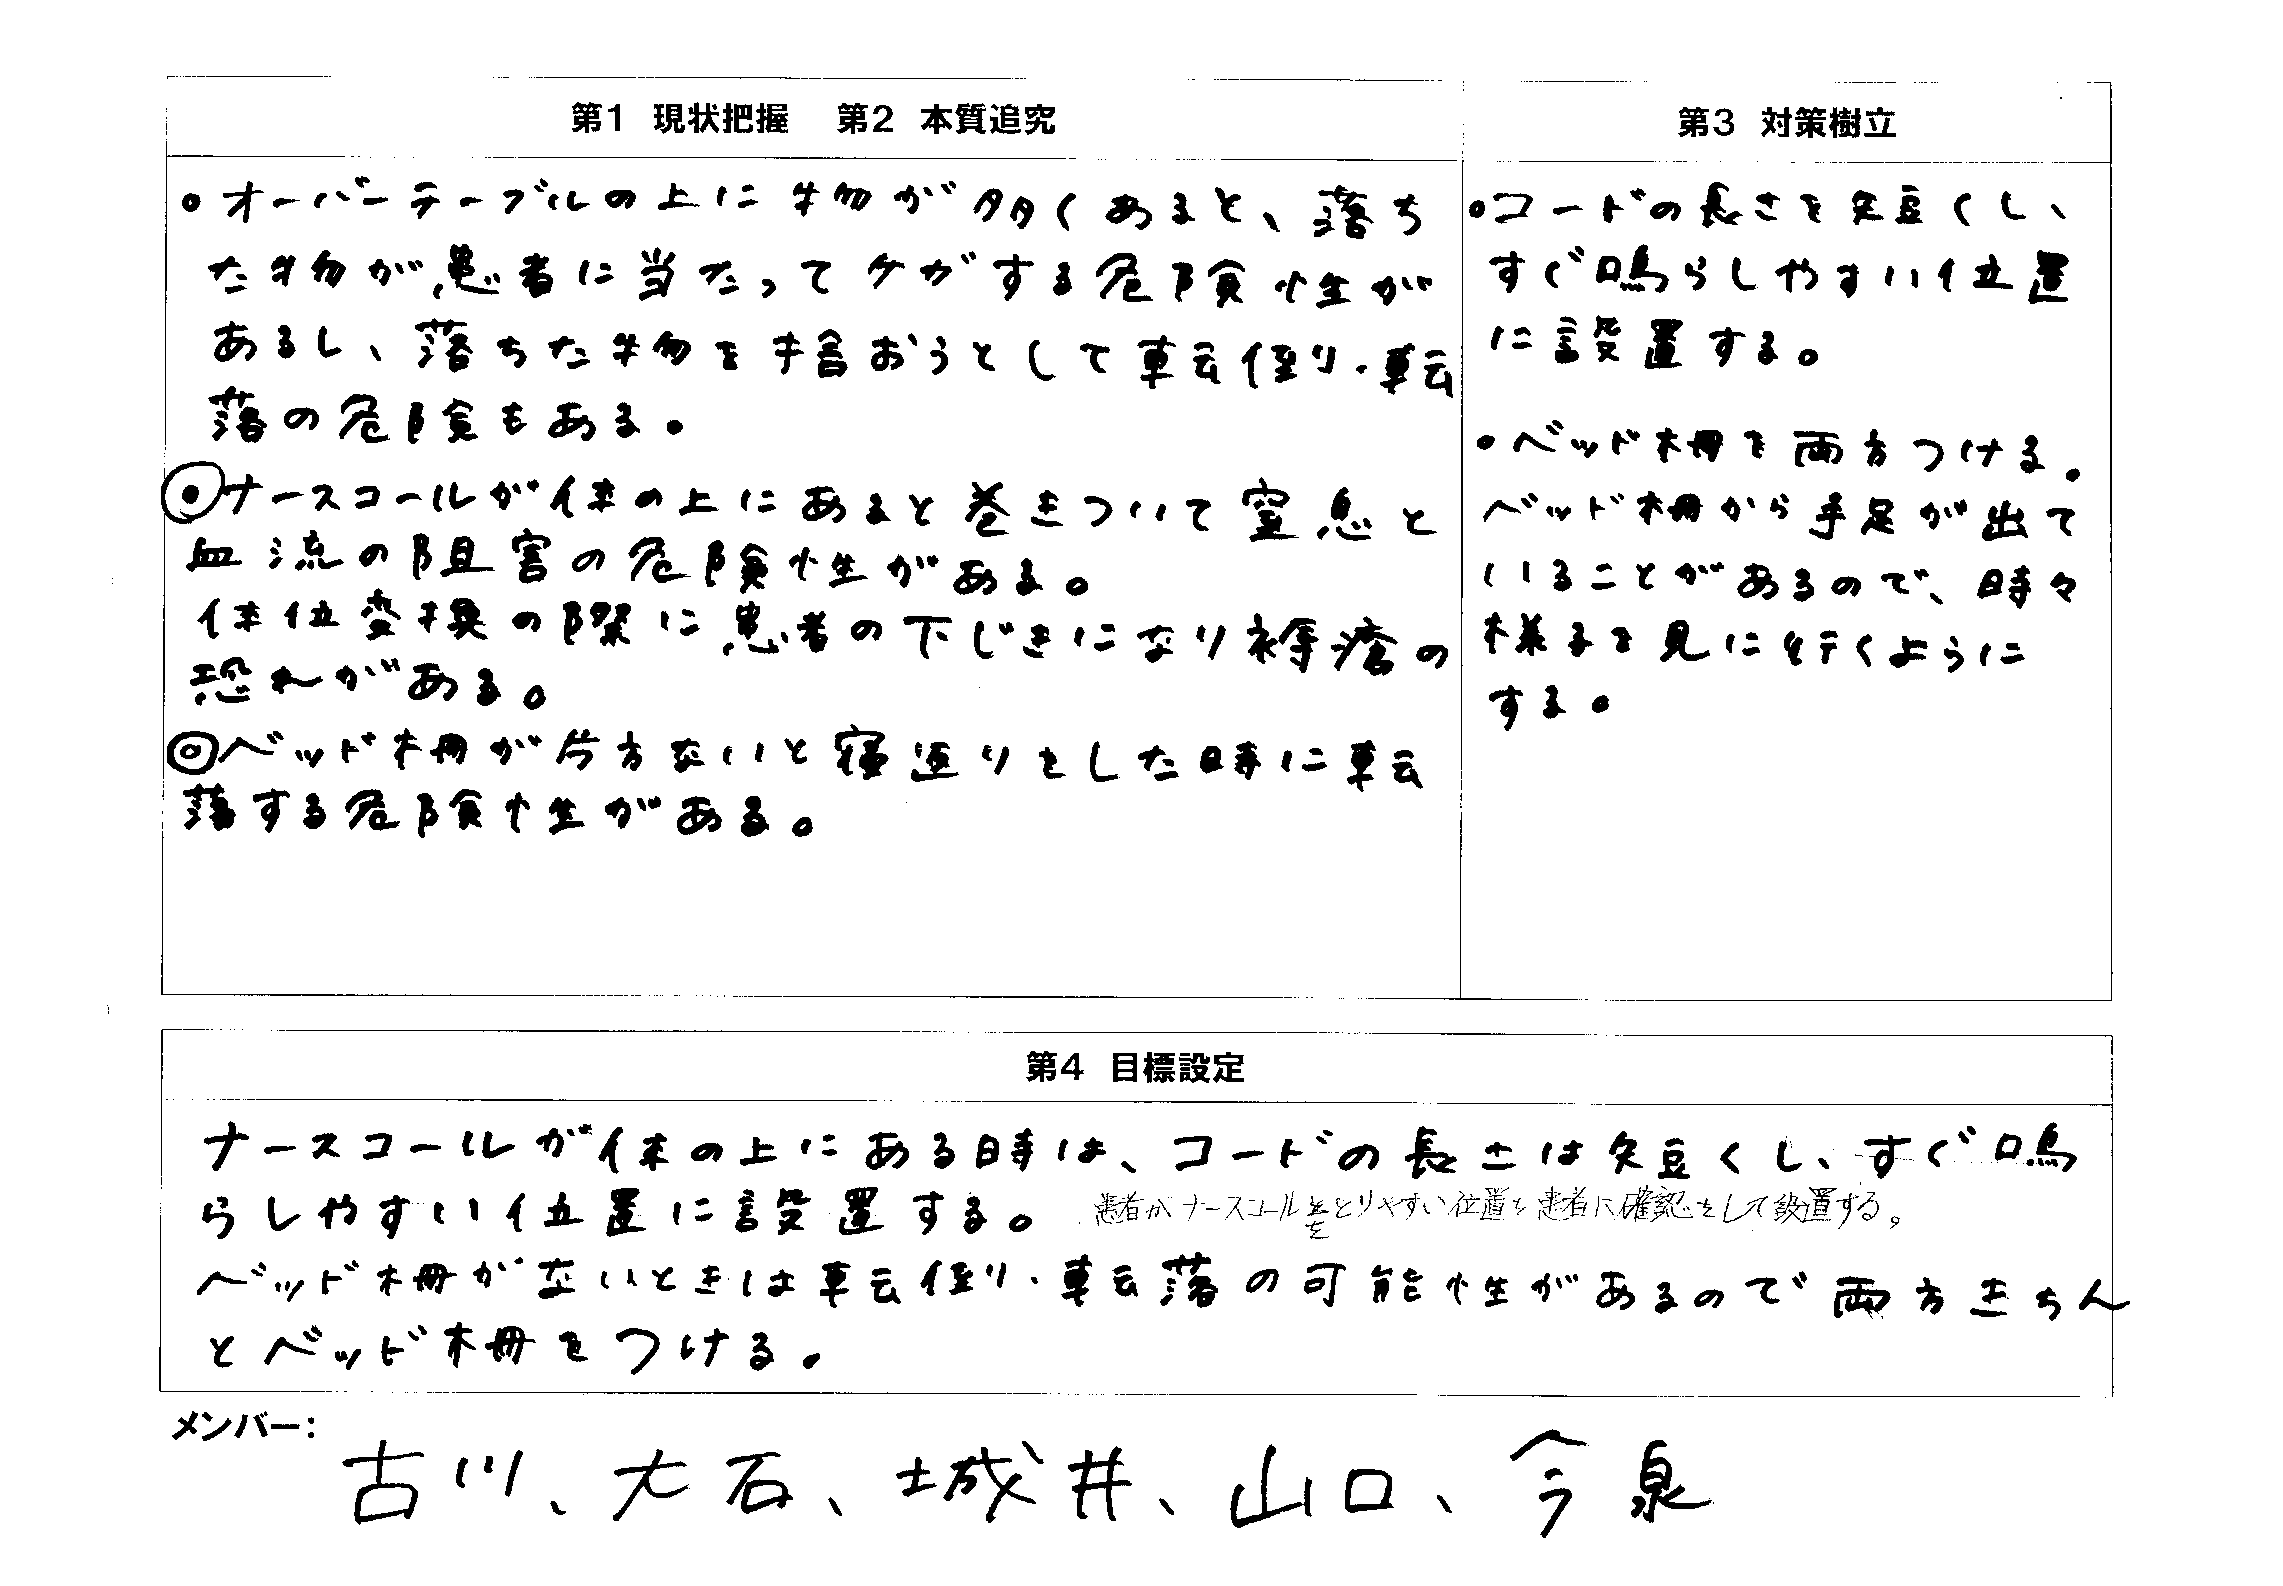 第1 現状把握 第2 本質追究
・オーバーテーブルの上に物が多くあると、落ち
た物が患者に当たってケガする危険性が
あるし、落ちた物を拾おうとして転倒・転
落の危険もある。
◎ナースコールが体の上にあると巻きついて窒息と
血流の阻害の危険性がある。
体位変換の際に患者の下じきになり褥瘡の
恐れがある。
◎ベッド柵が片方ないと寝返りをした時に転
落する危険性がある。
第3 対策樹立
・コードの長さを短くし、
すぐ鳴らしやすい位置
に設置する。
・ベッド柵を両方つける。
ベッド柵から手足が出て
いることがあるので、時々
様子を見に行くように
する。
第4 目標設定
ナースコールが体の上にある時は、コードの長さは短くし、すぐ鳴
らしやすい位置に設置する。 患者がナースコールをとりやすい位置を患者に確認をして設置する。
ベッド柵がないときは転倒・転落の可能性があるので両方きちん
とベッド柵をつける。
メンバー：
古川、大石、城井、山口、今泉